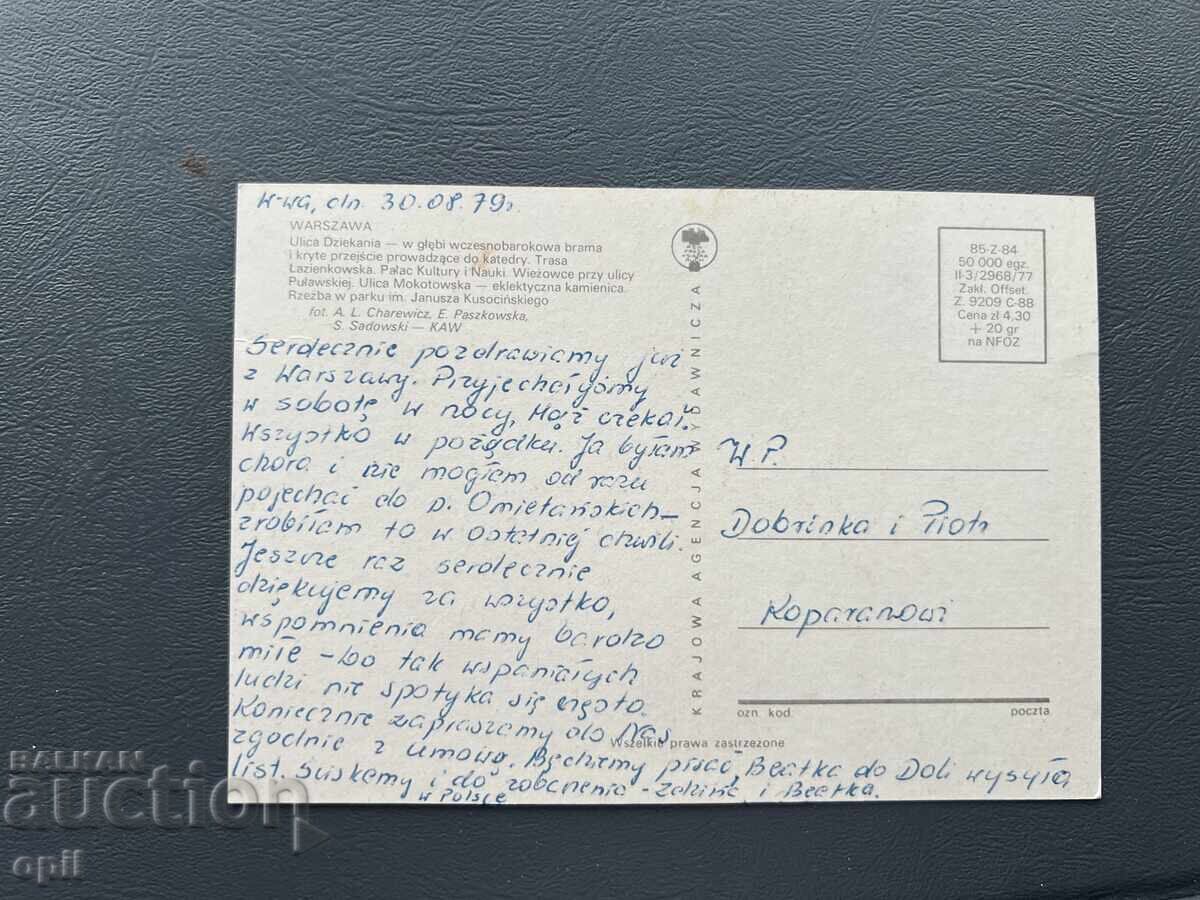 W-wa, dn. 30.08.79r.
WARSZAWA
Ulica Dziekania — w głębi wczesnobarokowa brama
i kryte przejście prowadzące do katedry. Trasa
Łazienkowska. Pałac Kultury i Nauki. Wieżowce przy ulicy
Puławskiej. Ulica Mokotowska — eklektyczna kamienica.
Rzeźba w parku im. Janusza Kusocińskiego
fot. A. L. Charewicz, E. Paszkowska,
S. Sadowski — KAW
Serdecznie pozdrawiamy już
z Warszawy. Przyjechałyśmy
w sobotę w nocy, Mąż czekał.
Wszystko w porządku. Ja byłam
chora i nie mogłam od razu
pojechać do p. Omietańskich–
zrobiłam to w ostatniej chwili.
Jeszcze raz serdecznie
dziękujemy za wszystko,
wspomnienia mamy bardzo
miłe – bo tak wspaniałych
ludzi nie spotyka się często.
Koniecznie zapraszamy do Nas
zgodnie z umową. Będziemy pisać, Beatka do Doli wysyła
list. Ściskamy i do zobaczenia – i Beatka.
w Polsce
KRAJOWA AGENCJA WYDAWNICZA
85-Z-84
50 000 egz.
II-3/2968/77
Zakł. Offset.
Z. 9209 C-88
Cena zł 4,30
+ 20 gr
na NFOZ
W.P.
Dobrinka i Piotr
Koparanowi
ozn. kod. poczta
Wszelkie prawa zastrzeżone
BALKAN
auction
opil